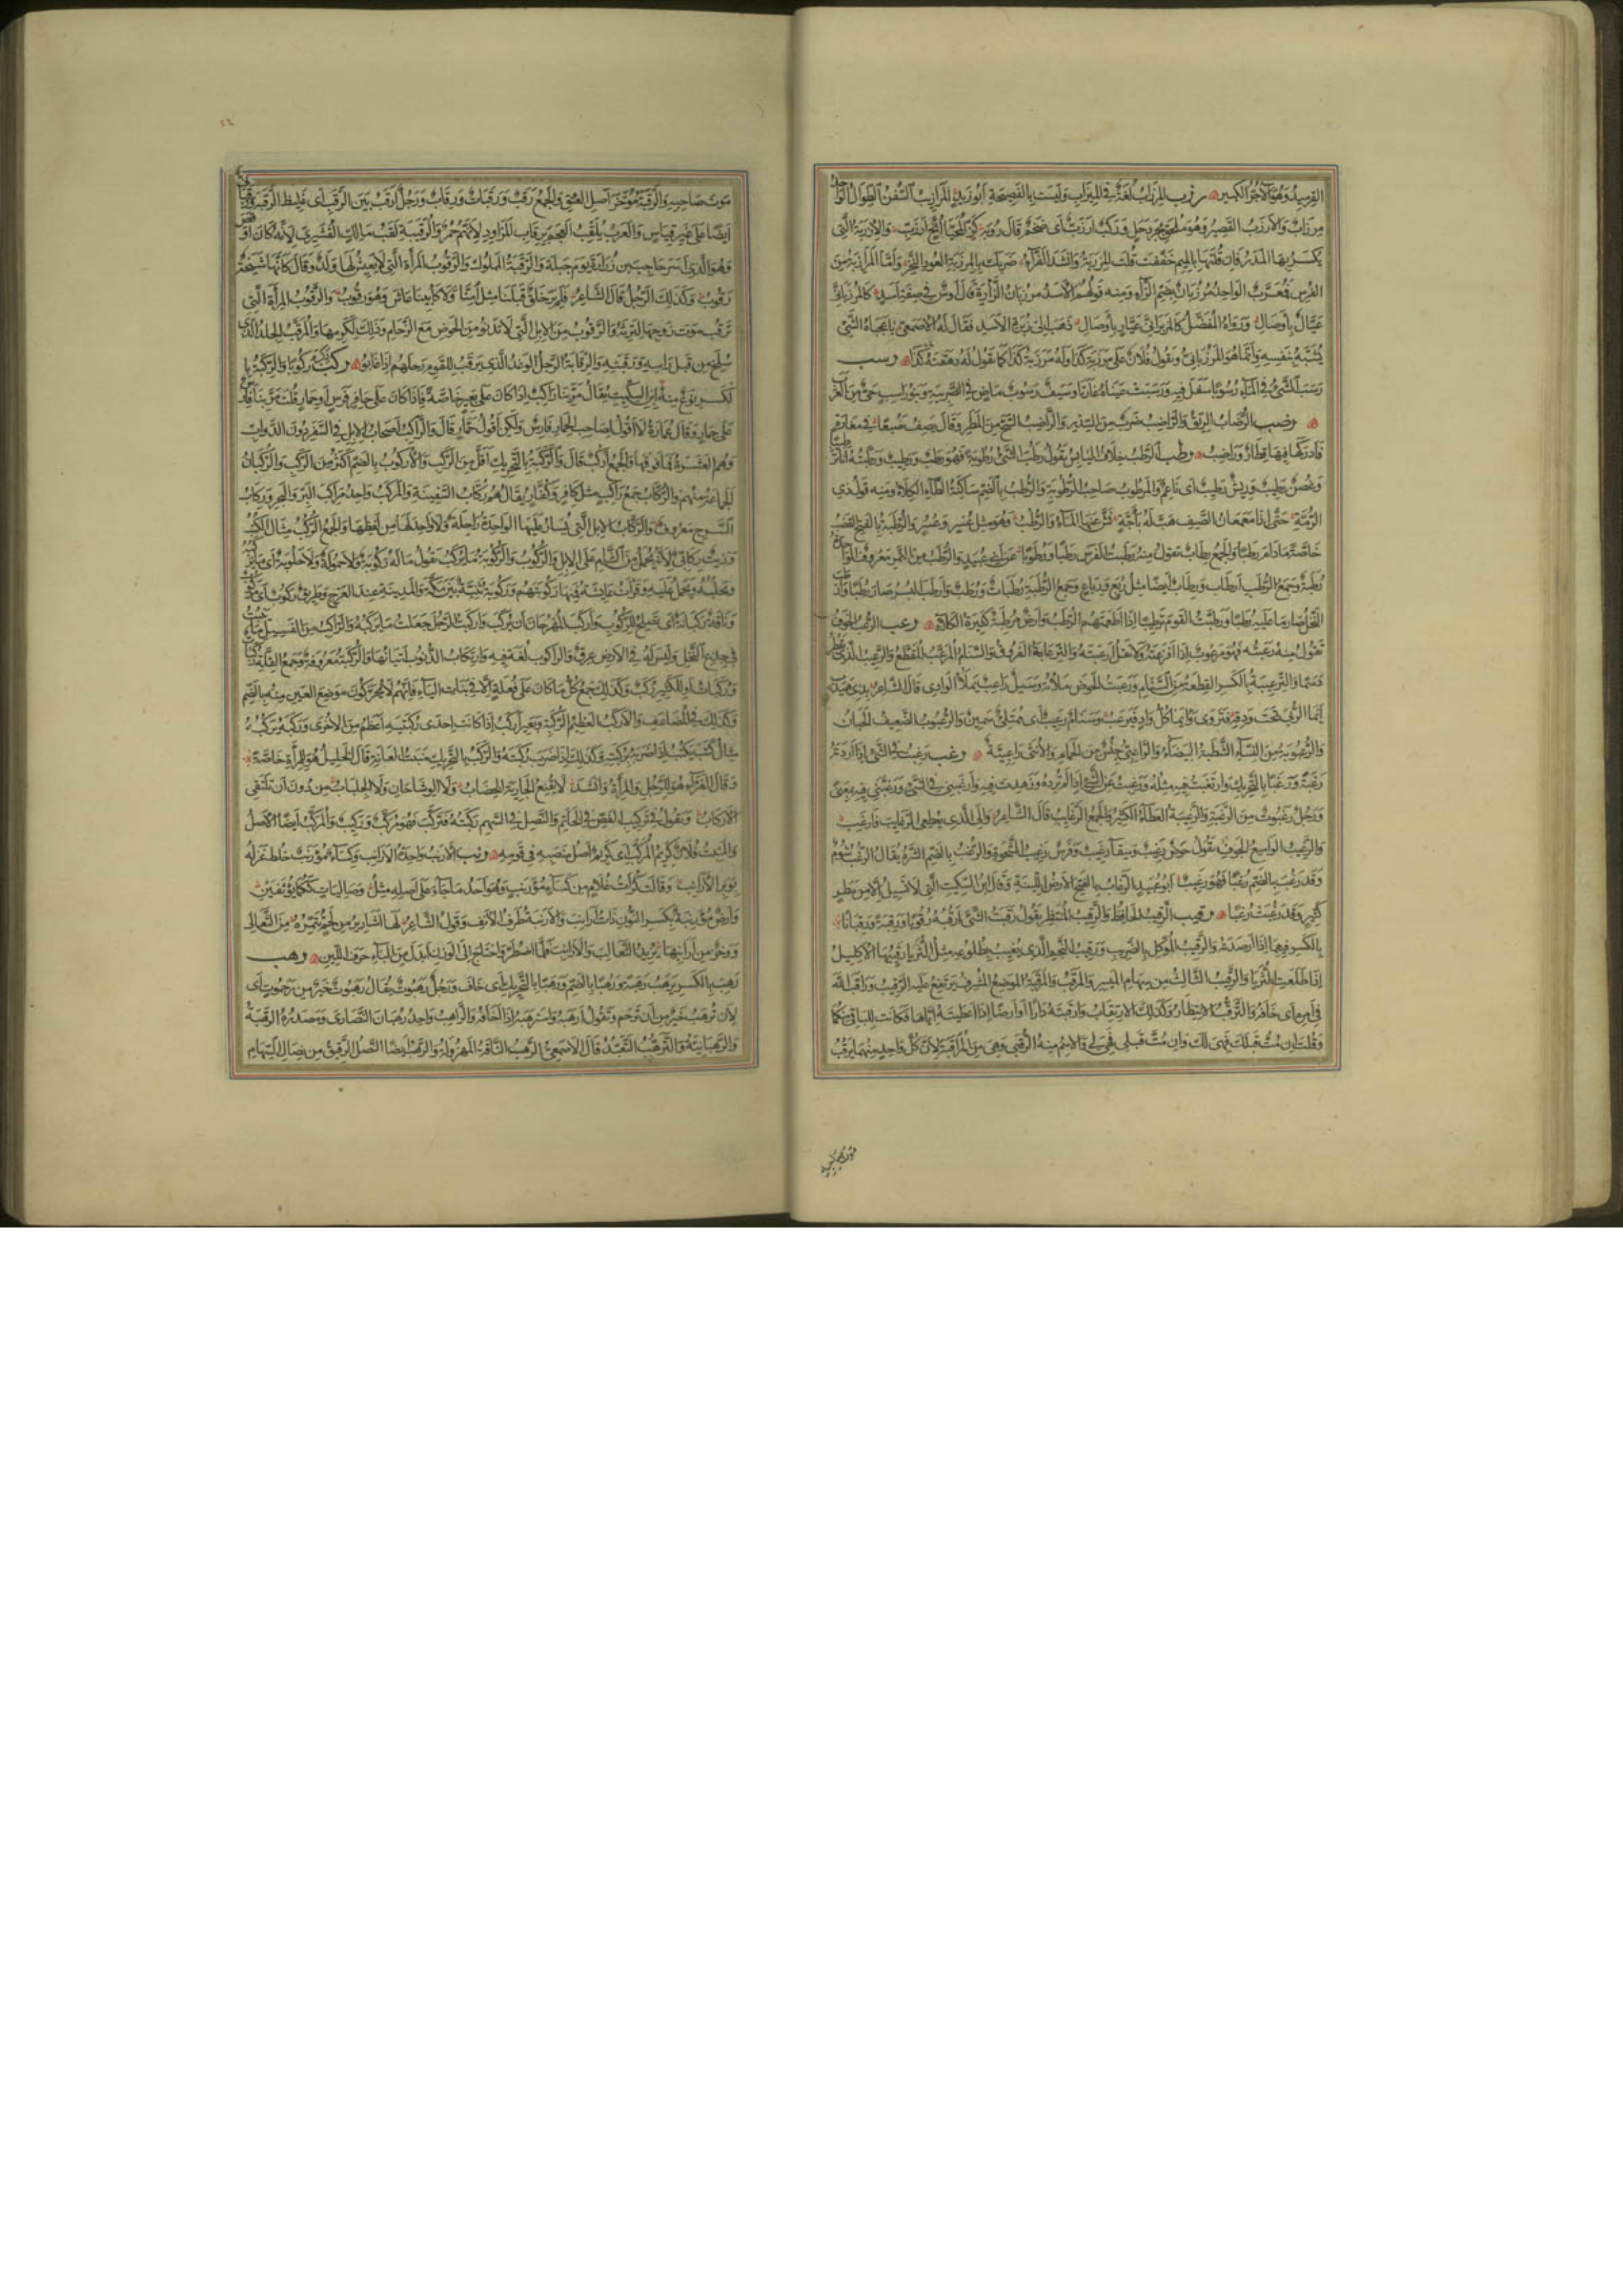 القرميد وهو الآجر الكبير ۞ رزب المرزاب لغة في الميزاب وليست بالفصيحة ابو زيد المرازيب السفن الطوال الواحد
مرزاب والارزب القصير وهو ملحق بجردحل وركب ارزب اى ضخم قال رؤبة كز المحيا انح ارزب والارزبة التى
يكسر بها المدر فان قلتها بالميم خففت قلت المرزبة وانشد الفراء ضربك بالمرزبة العود النخر واما المرازبة من
الفرس فمعرب الواحد مرزبان بضم الزاء ومنه قولهم للاسد مرزبان الزأرة قال اوس في صفة اسد كالمرزبانى
عيال باوصال ورواه المفضل كالمزبرانى عيار باوصال ذهب الى زبرة الاسد فقال له الاصمعى يا عجباه الشئ
يشبه بنفسه وانما هو المرزبانى وتقول فلان على مرزبة كذا وله مرزبة كذا كما تقول له دهقنة كذا ۞ رسب
رسب الشئ في الماء رسوبا سفل فيه ورسبت عيناه غارتا وسيف رسوب ماض في الضريبة وبنو راسب حى من العرب
۞ رضب الرضاب الريق والراضب ضرب من السدر والراضب السح من المطر وقال يصف ضبعا في مغارة
فادركها فيها قطار وراضب ۞ رطب الرطب خلاف اليابس تقول رطب الشئ رطوبة فهو رطب ورطيب ورطبته انا ترطيبا
وغصن رطيب وريش رطيب اى ناعم والمرطوب صاحب الرطوبة والرطب بالضم ساكنة الطاء الكلاء ومنه قول ذى
الرمة حتى اذا معمعان الصيف هب له باجة نش عنها الماء والرطب وهو مثل عسر وعسر والرطبة بالفتح القضب
خاصة ما دام رطبا والجمع رطاب تقول منه رطبت الفرس رطبا ورطوبا عن ابى عبيد والرطب من التمر معروف الواحدة
رطبة وجمع الرطب ارطاب ورطاب ايضا مثل ربع ورباع وجمع الرطبة رطبات ورطب وارطب البسر صار رطبا وارطب
النخل صار ما عليه رطبا ورطبت القوم ترطيبا اذا اطعمتهم الرطب وارض مرطبة كثيرة الكلاء ۞ رعب الرعب الخوف
تقول منه رعبته فهو مرعوب اذا افزعته ولا تقل ارعبته والترعابة الفروق والسنام المرعب المقطع والرعيب الذى يقطر
دسما والترعيبة بالكسر القطعة من السنام ورعبت الحوض ملأته وسيل راعب يملأ الوادى قال الشاعر بذى هيدب
ايما الربى تحت ودقه فتروى وايما كل واد فيرعب وسنام رعيب اى ممتلئ سمين والرعبوب الضعيف الجبان
والرعبوبة من النساء الشطبة البيضاء والراعبى جنس من الحمام والانثى راعبية ۞ رغب رغبت في الشئ اذا اردته
رغبة ورغبا بالتحريك وارتغبت فيه مثله ورغبت عن الشئ اذا لم ترده وزهدت فيه وارغبنى في الشئ ورغبنى فيه بمعنى
ورجل رغبوت من الرغبة والرغيبة العطاء الكثير والجمع الرغايب قال الشاعر والى الذى يعطى الرغايب فارغب
والرغيب الواسع الجوف تقول حوض رغيب وسقاء رغيب وفرس رغيب الشحوة والرغب بالضم الشره يقال الرغب شؤم
وقد رغب بالضم رغبا فهو رغيب ابو عبيد الرغاب بالفتح الارض اللينة وقال ابن السكيت التى لا تسيل الا من مطر
كثير وقد رغبت رغبا ۞ رقب الرقيب الحافظ والرقيب المنتظر تقول رقبت الشئ ارقبه رقوبا ورقبة ورقبانا
بالكسر فيهما اذا رصدته والرقيب الموكل بالضريب ورقيب النجم الذى يغيب بطلوعه مثل الثريا رقيبها الاكليل
اذا طلعت الثريا والرقيب الثالث من سهام الميسر والمرقب والمرقبة الموضع المشرف يرتفع عليه الرقيب وراقب الله
في امره اى خافه والترقب الانتظار وكذلك الارتقاب وارقبته دارا او ارضا اذا اعطيته اياها فكانت للباقى منكما
وقلت ان مت قبلك فهى لك وان مت قبلى فهى لى والاسم منه الرقبى وهى من المراقبة لان كل واحد منهما يرقب
موت صاحبه والرقبة مؤخر اصل العنق والجمع رقب ورقبات ورقاب ورجل ارقب بين الرقب اى غليظ الرقبة
ايضا على غير قياس والعرب تلقب العجم برقاب المزاود لانهم حمر والرقيبة لقب مالك القشيرى لانه كان اوقص
وهو الذى اسر حاجب بن زرارة يوم جبلة والرقبة المملوك والرقوب المرأة التى لا يعيش لها ولد وقال كانها شيخة
رقوب وكذلك الرجل قال الشاعر فلم ير خلق قبلنا مثل امنا ولا كابينا عاش وهو رقوب والرقوب المرأة التى
ترقب موت زوجها لترثه والرقوب من الابل التى لا تدنو من الحوض مع الزحام وذلك لكرمها والمرقب الجلد الذى
سلخ من قبل راسه ورقبته والرقابة الرجل الوغد الذى يرقب للقوم رحلهم اذا غابوا ۞ ركب ركب ركوبا والركبة با
لكسر نوع منه ابن السكيت يقال مر بنا راكب اذا كان على بعير خاصة فاذا كان على حافر فرس او حمار قلت مر بنا فارس
على حمار وقال عمارة لا اقول لصاحب الحمار فارس ولكن اقول حمار قال والراكب اصحاب الابل في السفر دون الدواب
وهم العشرة فما فوقها والجمع اركب قال والركبة بالتحريك اقل من الركب والاركوب بالضم اكثر من الركب والركبان
الجماعة منهم والركاب جمع راكب مثل كافر وكفار يقال هم ركاب السفينة والمركب واحد مراكب البر والبحر وركاب
السرج معروف والركاب الابل التى يسار عليها الواحدة راحلة ولا واحد لها من لفظها والجمع الركب مثال الكتب
وزيت ركابى لانه يحمل من الشام على الابل والركوب والركوبة ما يركب تقول ما له ركوبة ولا حمولة ولا حلوبة اى ما يركبه
ويحلبه ويحمل عليه وقرات عائشة فمنها ركوبتهم وركوبة ثنية بين مكة والمدينة عند العرج وطريق ركوب اى مركوب
وناقة ركبانة اى تصلح للركوب واركب المهر حان ان يركب واركبت الرجل جعلت له ما يركبه والراكب من الفسيل ما ينبت
في جذوع النخل وليس له في الارض عرق والراكوب لغة فيه وارتكاب الذنوب اتيانها والركبة معروفة وجمع القلة ركبات
وركبات وللكثير ركب وكذلك جمع كل ما كان على فعلة الا في بنات الياء فانهم لا يحركون موضع العين منه بالضم
وكذلك في المضاعف والاركب العظيم الركبة وبعير اركب اذا كانت احدى ركبتيه اعظم من الاخرى وركبه يركبه
مثال كتب يكتب اذا ضربه بركبته وكذلك اذا ضرب ركبته والركب بالتحريك منبت العانة قال الخليل هو للمرأة خاصة
وقال الفراء هو للرجل والمرأة وانشد لا يقنع الجارية الخضاب ولا الوشاحان ولا الجلباب من دون ان تلتقى
الاركاب وتقول في تركيب الفص في الخاتم والنصل في السهم ركبته فتركب فهو مركب وركيب والمركب ايضا الاصل
والمنبت فلان كريم المركب اى كريم اصل منصبه في قومه ۞ رنب الارنب واحدة الارانب وكساء مؤرنب خلط غزله
بوبر الارانب وقالت كرات غلام من كساء مؤرنب وهو احد ما جاء على اصله مثل وصاليات ككما يؤثفين
وارض مؤرنبة بكسر النون ذات ارانب والارنبة طرف الانف وقول الشاعر لها اشارير من لحم تتمره من الثعالى
ووخز من ارانيها يريد الثعالب والارانب فلما اضطر واحتاج الى الوزن ابدل من الباء حرف اللين ۞ رهب
رهب بالكسر يرهب رهبة ورهبا بالضم ورهبا بالتحريك اى خاف ورجل رهبوت يقال رهبوت خير من رحموت اى
لان ترهب خير من ان ترحم وتقول ارهبه واسترهبه اذا اخافه والراهب واحد رهبان النصارى ومصدره الرهبة
والرهبانية والترهب التعبد قال الاصمعى الرهب الناقة المهزولة والرهب ايضا النصل الرقيق من نصال السهام